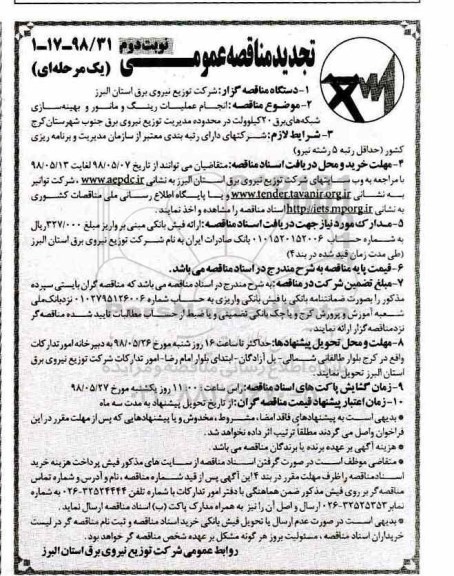 تجدید مناقصه عمومی
نوبت دوم ۹۸/۳۱-۱۷-۱
(یک مرحله‌ای)
۱-دستگاه مناقصه گزار: شرکت توزیع نیروی برق استان البرز
۲-موضوع مناقصه: انجام عملیات رینگ و مانور و بهینه‌سازی
شبکه‌های برق ۲۰ کیلوولت در محدوده مدیریت توزیع برق جنوب شهرستان کرج
۳- شرایط لازم: شرکتهای دارای رتبه بندی معتبر از سازمان مدیریت و برنامه ریزی
کشور (حداقل رتبه ۵ رشته نیرو)
۴-مهلت خرید و محل دریافت اسناد مناقصه: متقاضیان می توانند از تاریخ ۹۸/۰۵/۰۷ لغایت ۹۸/۰۵/۱۳
با مراجعه به وب سایتهای شرکت توزیع نیروی برق استان البرز به نشانی www.aepdc.ir ، شرکت توانیر
به نشانی www.tender.tavanir.org.ir و یا پایگاه اطلاع رسانی ملی مناقصات کشوری
به نشانی http://iets.mporg.ir اسناد مناقصه را مشاهده و اخذ نمایند.
۵-مدارک مورد نیاز جهت دریافت اسناد مناقصه: ارائه فیش بانکی مبنی بر واریز مبلغ ۳۲۷/۰۰۰ ریال
به شماره حساب ۰۱۰۱۵۲۰۱۵۲۰۰۶ بانک صادرات ایران به نام شرکت توزیع نیروی برق استان البرز
(طی مدت زمان قید شده در بند۴)
۶-قیمت پایه مناقصه به شرح مندرج در اسناد مناقصه می باشد.
۷-مبلغ تضمین شرکت در مناقصه: به شرح مندرج در اسناد مناقصه می باشد که مناقصه گران بایستی سپرده
مذکور را بصورت ضمانتنامه بانکی یا فیش بانکی واریزی به حساب شماره ۰۱۰۲۷۹۵۱۲۶۰۰۶ نزد بانک ملی
شعبه آموزش و پرورش کرج و یا چک بانکی تضمینی و یا ضبط از حساب مطالبات تایید شده مناقصه گر
نزد مناقصه گزار ارائه نمایند.
۸-مهلت و محل تحویل پیشنهادها: حداکثر تا ساعت ۱۶ روز شنبه مورخ ۹۸/۰۵/۲۶ به دبیرخانه امور تدارکات
واقع در کرج بلوار طالقانی شمالی- پل آزادگان- ابتدای بلوار امام رضا- امور تدارکات شرکت توزیع نیروی برق
استان البرز تحویل نمایند.
۹-زمان گشایش پاکت های اسناد مناقصه: راس ساعت ۱۱:۰۰ روز یکشنبه مورخ ۹۸/۰۵/۲۷
۱۰-زمان اعتبار پیشنهاد قیمت مناقصه گران: از تاریخ تحویل پیشنهاد به مدت سه ماه
* بدیهی است به پیشنهادهای فاقد امضا، مشروط، مخدوش و یا پیشنهادهایی که پس از مهلت مقرر در این
فراخوان واصل می گردند مطلقا ترتیب اثر داده نخواهد شد.
* هزینه آگهی بر عهده برنده یا برندگان مناقصه می باشد.
* متقاضی موظف است در صورت گرفتن اسناد مناقصه از سایت های مذکور فیش پرداخت هزینه خرید
اسناد مناقصه را ظرف مهلت مقرر در بند ۴ این آگهی پس از قید شماره مناقصه، نام و آدرس و شماره تماس
مناقصه گر بر روی فیش مذکور ضمن هماهنگی با دفتر امور تدارکات با شماره تلفن ۳۲۵۳۴۴۴۴-۰۲۶ به شماره
نمابر ۳۲۵۲۵۳۵۳-۰۲۶ ارسال و اصل آن را نیز به همراه مدارک پاکت (ب) اسناد مناقصه ارسال نماید.
* بدیهی است در صورت عدم ارسال یا تحویل فیش بانکی خرید اسناد مناقصه و ثبت نام مناقصه گر در لیست
خریداران اسناد مناقصه، مسئولیت بروز هر گونه مشکل بر عهده شخص مناقصه گر خواهد بود.
روابط عمومی شرکت توزیع نیروی برق استان البرز